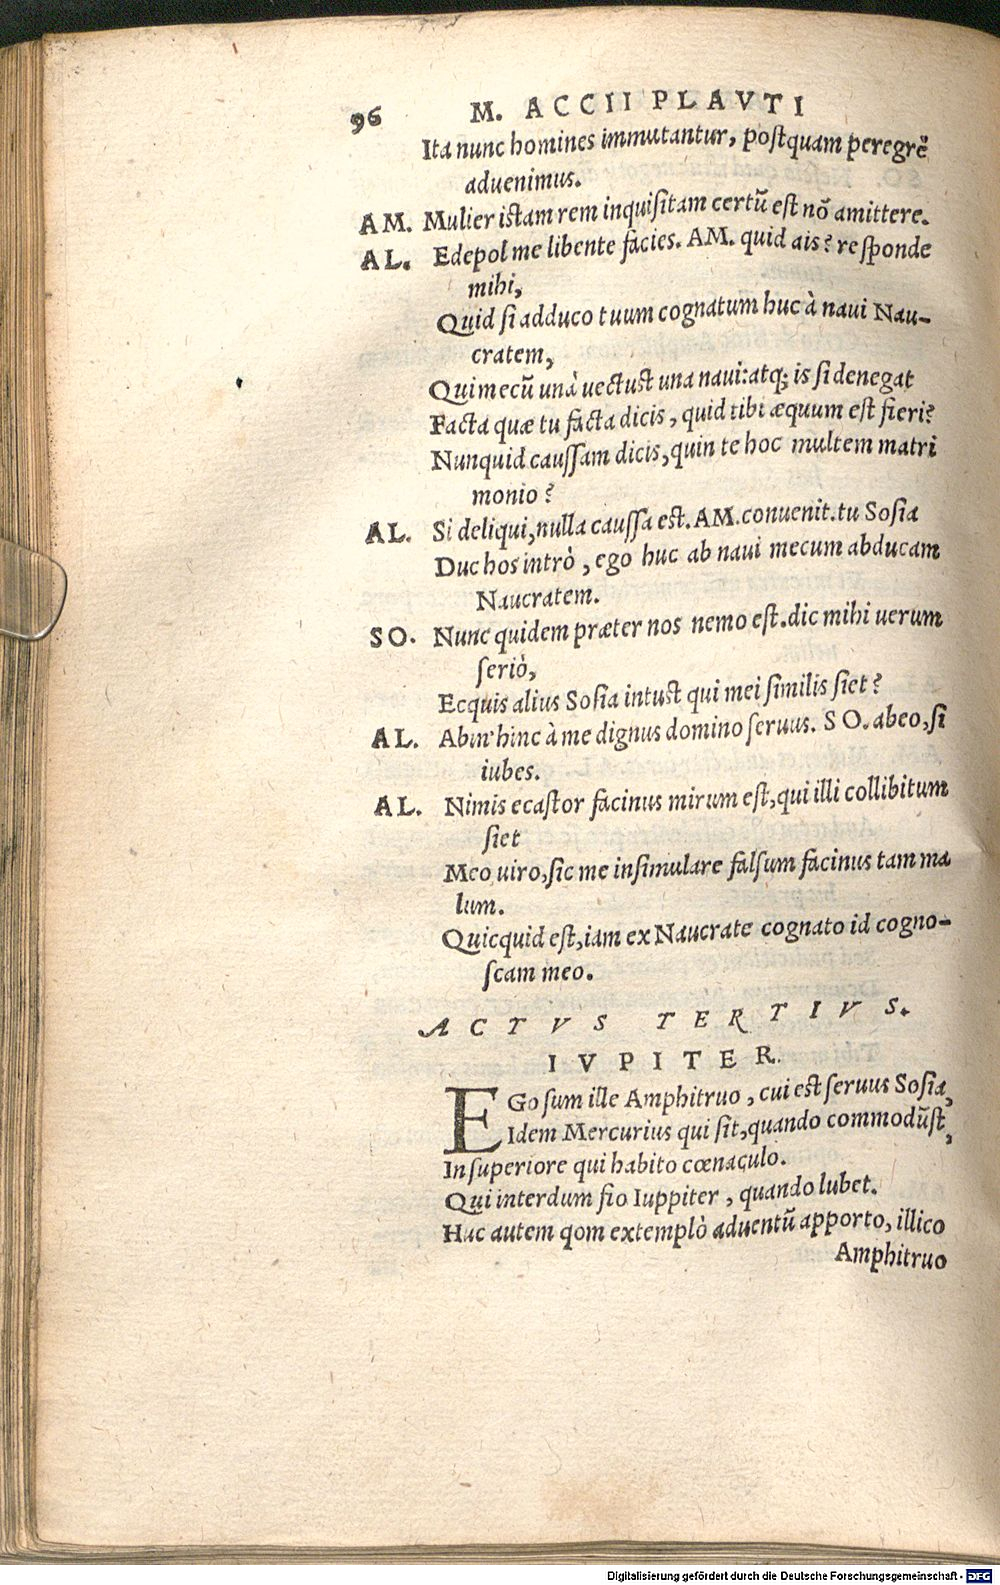 96 M. ACCII PLAVTI
Ita nunc homines immutantur, postquam peregrẽ
aduenimus.
AM. Mulier istam rem inquisitam certũ est nõ amittere.
AL. Edepol me libente facies. AM. quid ais? responde
mihi,
Quid si adduco tuum cognatum huc à naui Nau-
cratem,
Qui mecũ unà uectust una naui: atq; is si denegat
Facta quæ tu facta dicis, quid tibi æquum est fieri?
Nunquid caussam dicis, quin te hoc multem matri
monio?
AL. Si deliqui, nulla caussa est. AM. conuenit. tu Sosia
Duc hos intrò, ego huc ab naui mecum abducam
Naucratem.
SO. Nunc quidem præter nos nemo est. dic mihi uerum
seriò,
Ecquis alius Sosia intust qui mei similis siet?
AL. Abin' hinc à me dignus domino seruus. SO. abeo, si
iubes.
AL. Nimis ecastor facinus mirum est, qui illi collibitum
siet
Meo uiro, sic me insimulare falsum facinus tam ma
lum.
Quicquid est, iam ex Naucrate cognato id cogno-
scam meo.
ACTVS TERTIVS.
IVPITER.
EGo sum ille Amphitruo, cui est seruus Sosia,
Idem Mercurius qui sit, quando commodũst,
In superiore qui habito cœnaculo.
Qui interdum fio Iuppiter, quando lubet.
Huc autem qom extemplò aduentũ apporto, illico
Amphitruo
Digitalisierung gefördert durch die Deutsche Forschungsgemeinschaft - DFG